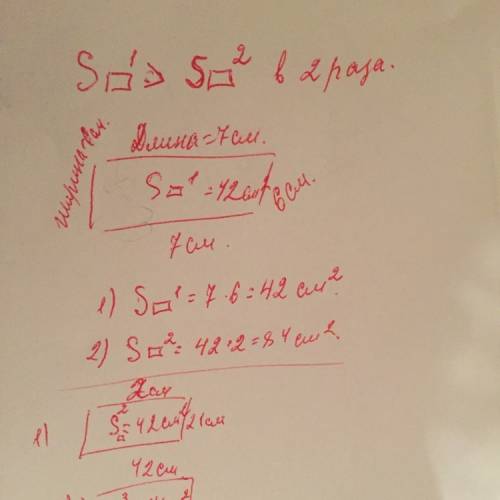 S▭¹ > S▭² в 2 раза.
Длина = 7 см.
S▭¹ = 42 см² 6 см.
7 см.
1) S▭¹ = 7 · 6 = 42 см².
2) S▭² = 42 · 2 = 84 см².
2 см
1) S▭² = 42 см² 21 см
42 см